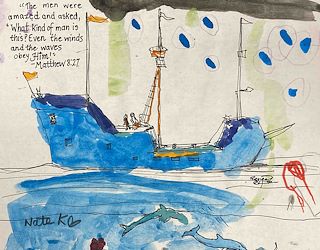 "The men were
amazed and asked,
"What kind of man is
this? Even the winds
and the waves
obey Him!"
-Matthew 8:27
Nate K